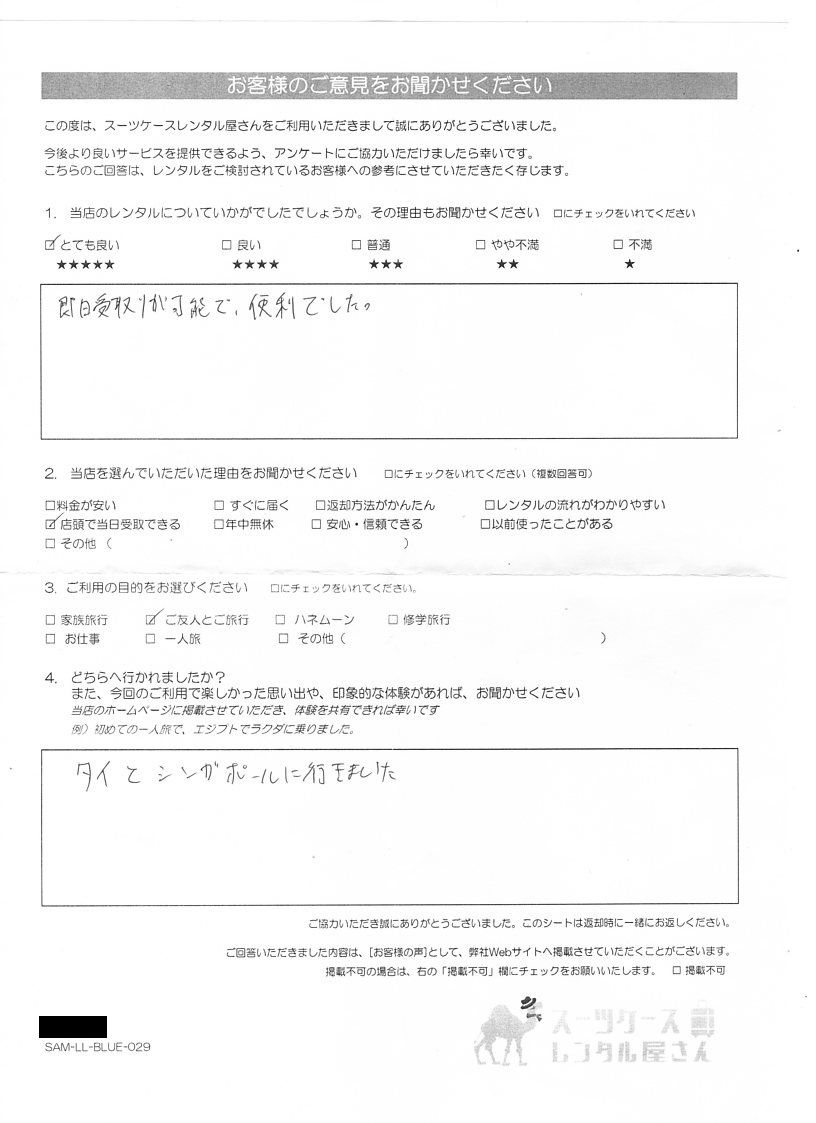 お客様のご意見をお聞かせください
この度は、スーツケースレンタル屋さんをご利用いただきまして誠にありがとうございました。
今後より良いサービスを提供できるよう、アンケートにご協力いただけましたら幸いです。
こちらのご回答は、レンタルをご検討されているお客様への参考にさせていただきたく存じます。
1. 当店のレンタルについていかがでしたでしょうか。その理由もお聞かせください □にチェックをいれてください
☑とても良い □ 良い □ 普通 □ やや不満 □ 不満
★★★★★ ★★★★ ★★★ ★★ ★
即日受取りが可能で、便利でした。
2. 当店を選んでいただいた理由をお聞かせください □にチェックをいれてください（複数回答可）
□料金が安い □ すぐに届く □返却方法がかんたん □レンタルの流れがわかりやすい
☑店頭で当日受取できる □年中無休 □ 安心・信頼できる □以前使ったことがある
□ その他（ ）
3. ご利用の目的をお選びください □にチェックをいれてください。
□ 家族旅行 ☑ ご友人とご旅行 □ ハネムーン □ 修学旅行
□ お仕事 □ 一人旅 □ その他（ ）
4. どちらへ行かれましたか？
また、今回のご利用で楽しかった思い出や、印象的な体験があれば、お聞かせください
当店のホームページに掲載させていただき、体験を共有できれば幸いです
例）初めての一人旅で、エジプトでラクダに乗りました。
タイとシンガポールに行きました
ご協力いただき誠にありがとうございました。このシートは返却時に一緒にお返しください。
ご回答いただきました内容は、[お客様の声]として、弊社Webサイトへ掲載させていただくことがございます。
掲載不可の場合は、右の「掲載不可」欄にチェックをお願いいたします。 □ 掲載不可
スーツケース
レンタル屋さん
SAM-LL-BLUE-029